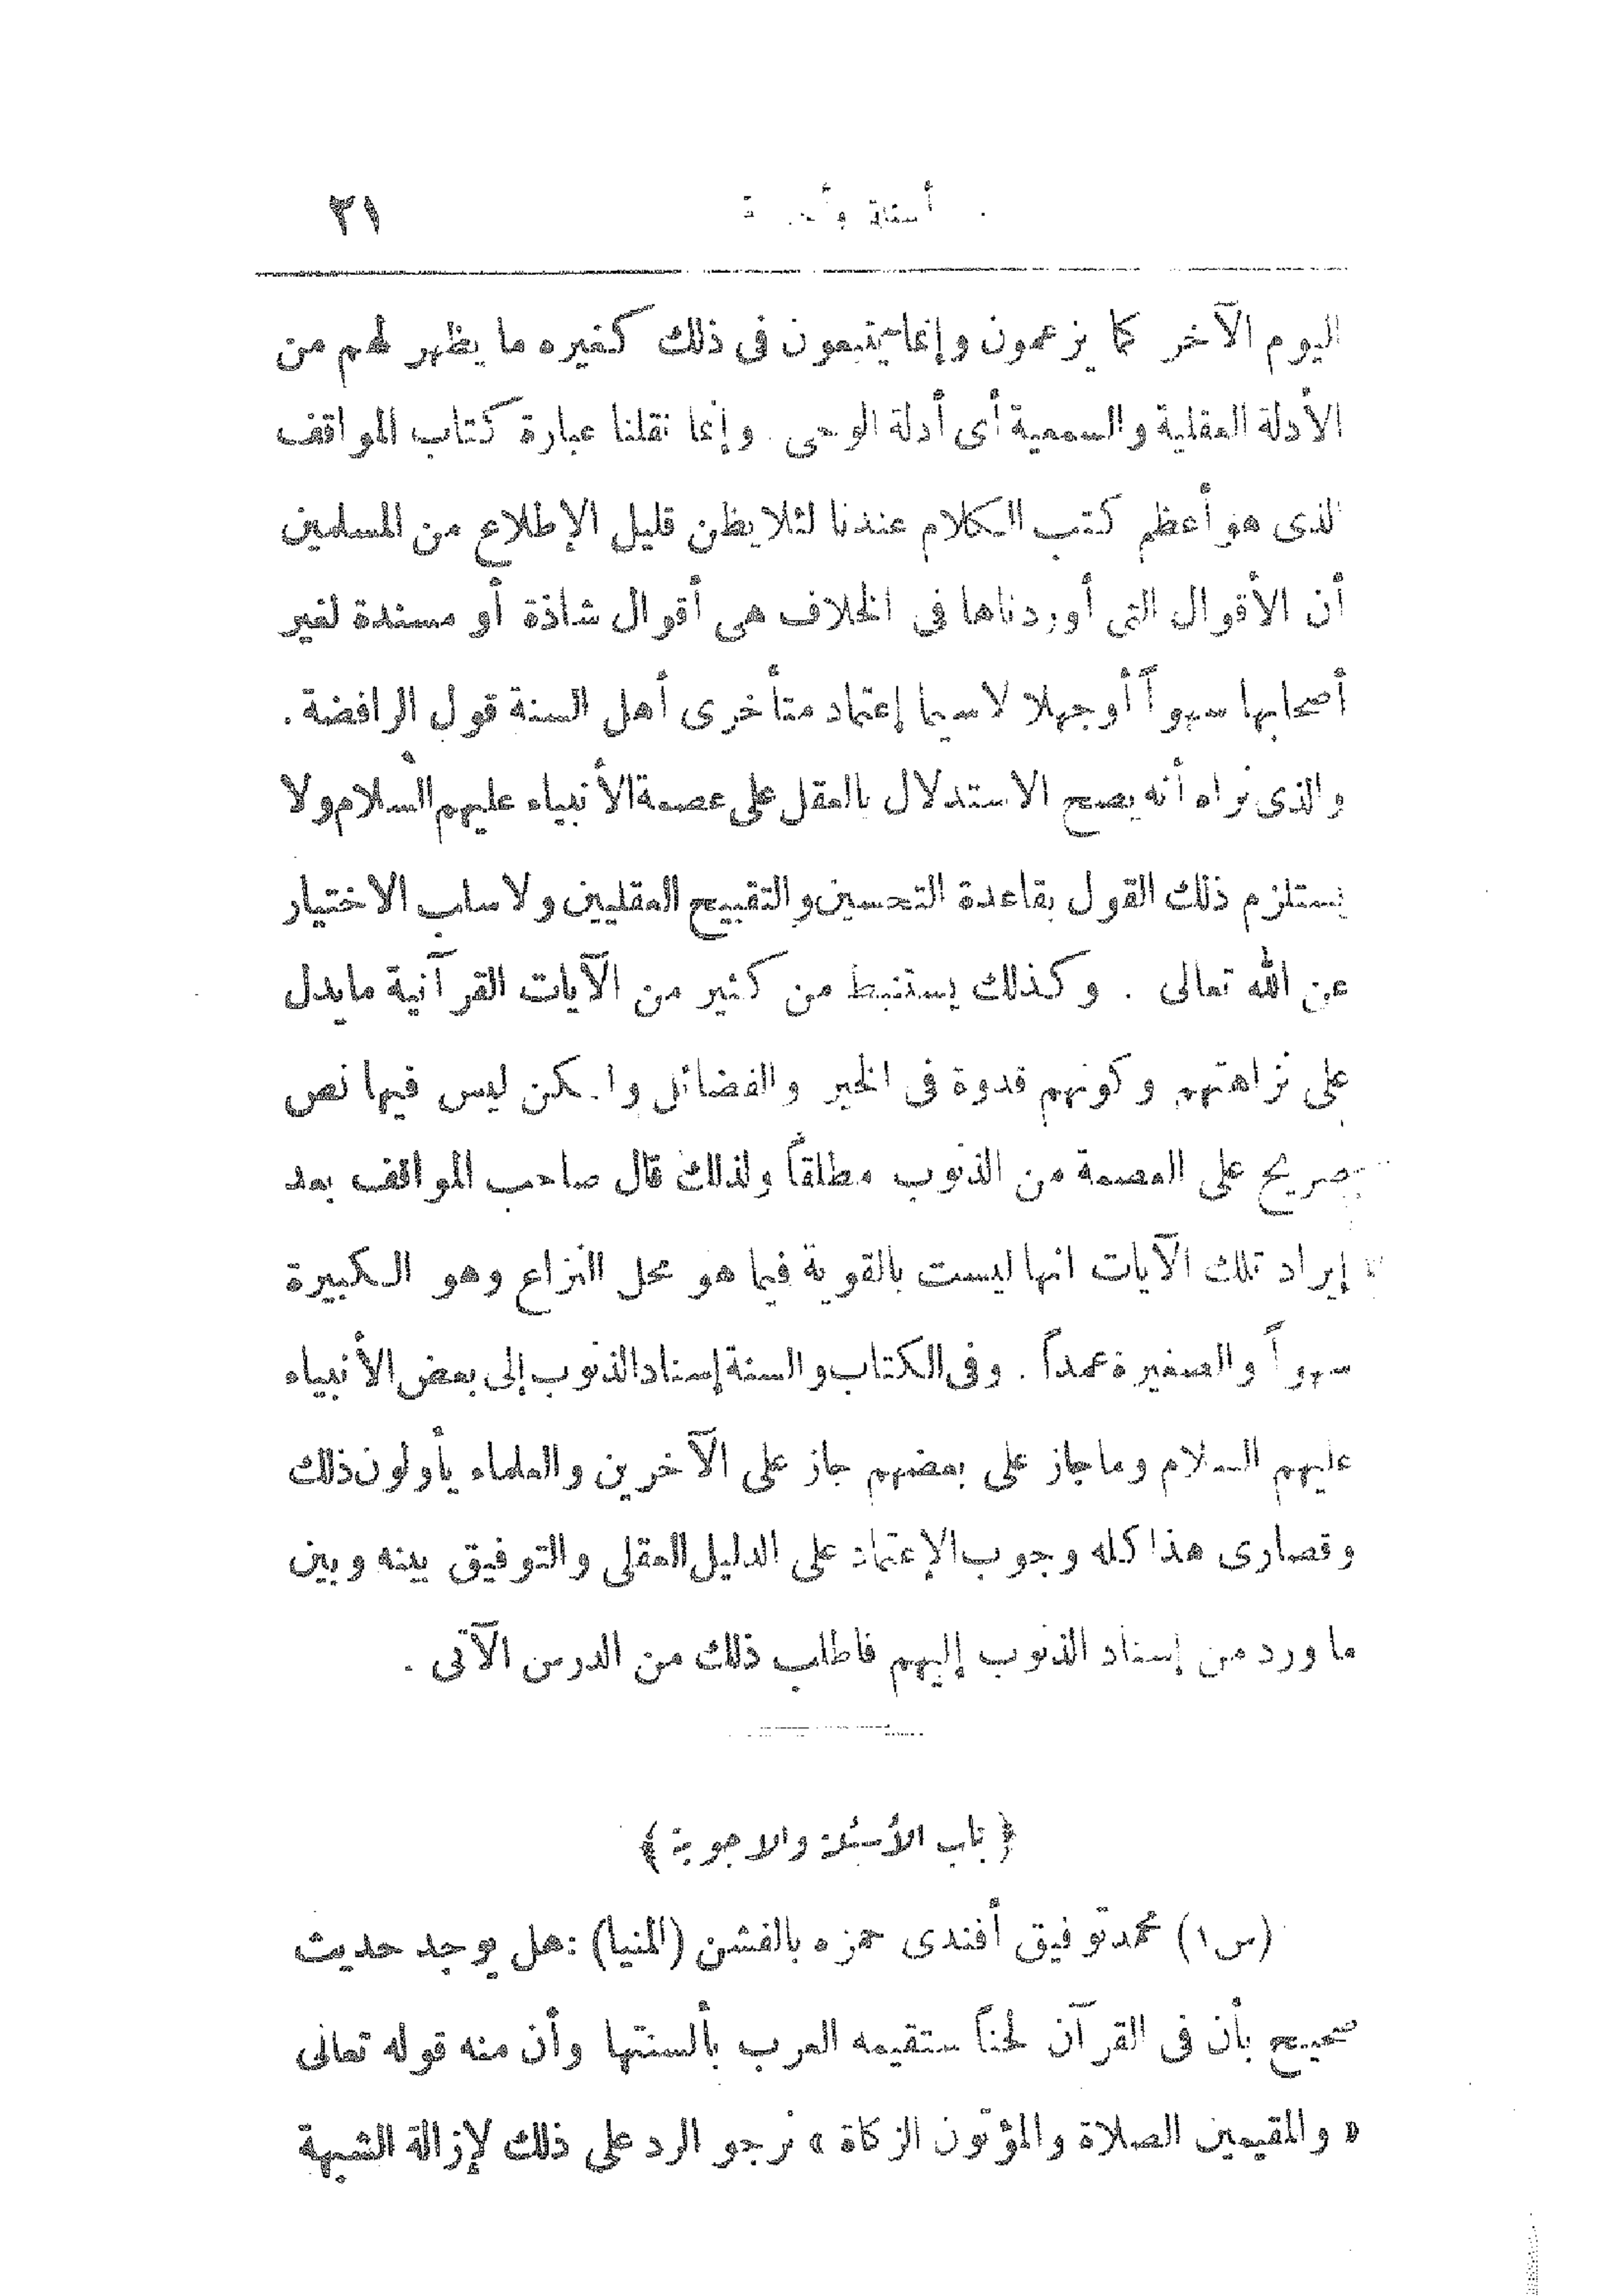 أسئلة ٢١
اليوم الآخر كما يزعمون وإنما يتبعون فى ذلك كغيره ما يظهر لهم من
الأدلة العقلية والسمعية أى أدلة الوحى . وإنما نقلنا عبارة كتاب المواقف
الذى هو أعظم كتب الكلام عندنا لئلا يظن قليل الإطلاع من المسلمين
أن الأقوال التى أوردناها فى الخلاف هى أقوال شاذة أو مسندة لغير
أصحابها سهواً أو جهلا لا سيما إعتماد متأخرى أهل السنة قول الرافضة .
والذى نراه أنه يصح الاستدلال بالعقل على عصمة الأنبياء عليهم السلام ولا
يستلزم ذلك القول بقاعدة التحسين والتقبيح العقليين ولا سلب الاختيار
عن الله تعالى . وكذلك يستنبط من كثير من الآيات القرآنية ما يدل
على نزاهتهم وكونهم قدوة فى الخير والفضائل ولكن ليس فيها نص
صريح على العصمة من الذنوب مطلقاً ولذلك قال صاحب المواقف بعد
إيراد تلك الآيات انها ليست بالقوية فيما هو محل النزاع وهو الكبيرة
سهواً والصغيرة عمداً . وفى الكتاب والسنة إسناد الذنوب إلى بعض الأنبياء
عليهم السلام وما جاز على بعضهم جاز على الآخرين والعلماء يأولون ذلك
وقصارى هذا كله وجوب الإعتماد على الدليل العقلى والتوفيق بينه وبين
ما ورد من إسناد الذنوب إليهم فاطلب ذلك من الدرس الآتى .
﴿ باب الأسئلة والاجوبة ﴾
(س١) محمد توفيق أفندى حمزه بالفشن (المنيا) : هل يوجد حديث
صحيح بأن فى القرآن لحناً ستقيمه العرب بألسنتها وأن منه قوله تعالى
« والمقيمين الصلاة والمؤتون الزكاة » نرجو الرد على ذلك لإزالة الشبهة